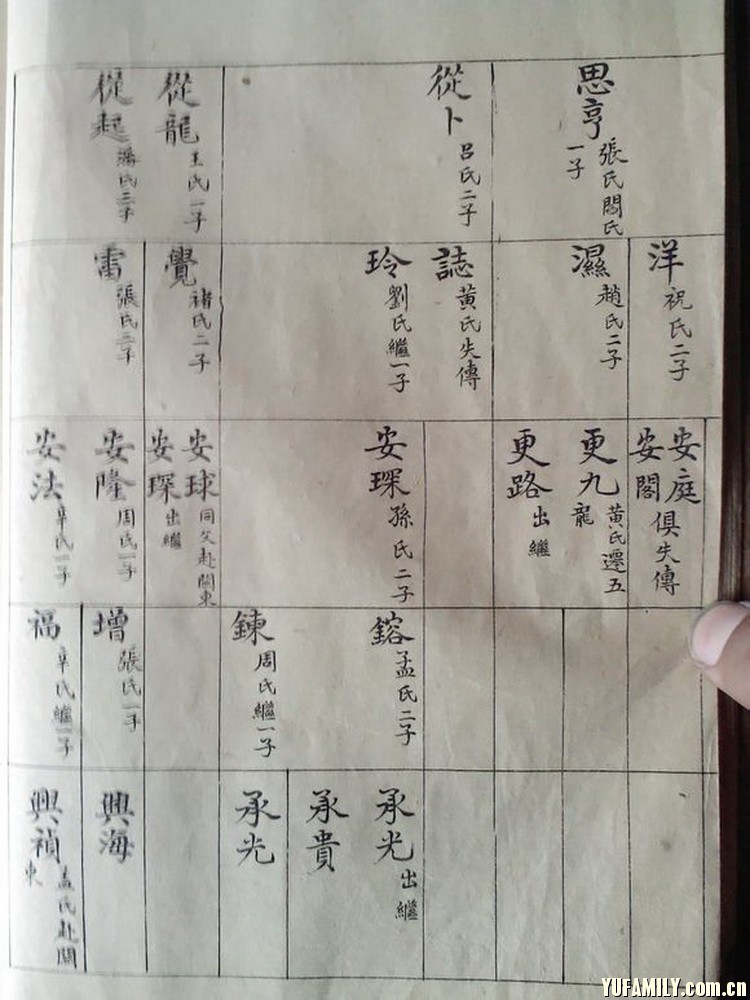 思亨 張氏閻氏一子
從卜 呂氏二子
從龍 王氏一子
從起 潘氏三子
洋 祝氏二子
濕 趙氏二子
誌 黃氏失傳
玲 劉氏繼一子
覺 褚氏二子
雷 張氏三子
安庭
安閣 俱失傳
更九 黃氏遷五龍
更路 出繼
安琛 孫氏二子
安球 同父赴關東
安琛 出繼
安隆 周氏一子
安法 辛氏一子
鎔 孟氏二子
鍊 周氏繼一子
增 張氏一子
福 辛氏繼一子
承光 出繼
承貴
承光
興海
興禎 孟氏赴關東
YUFAMILY.com.cn